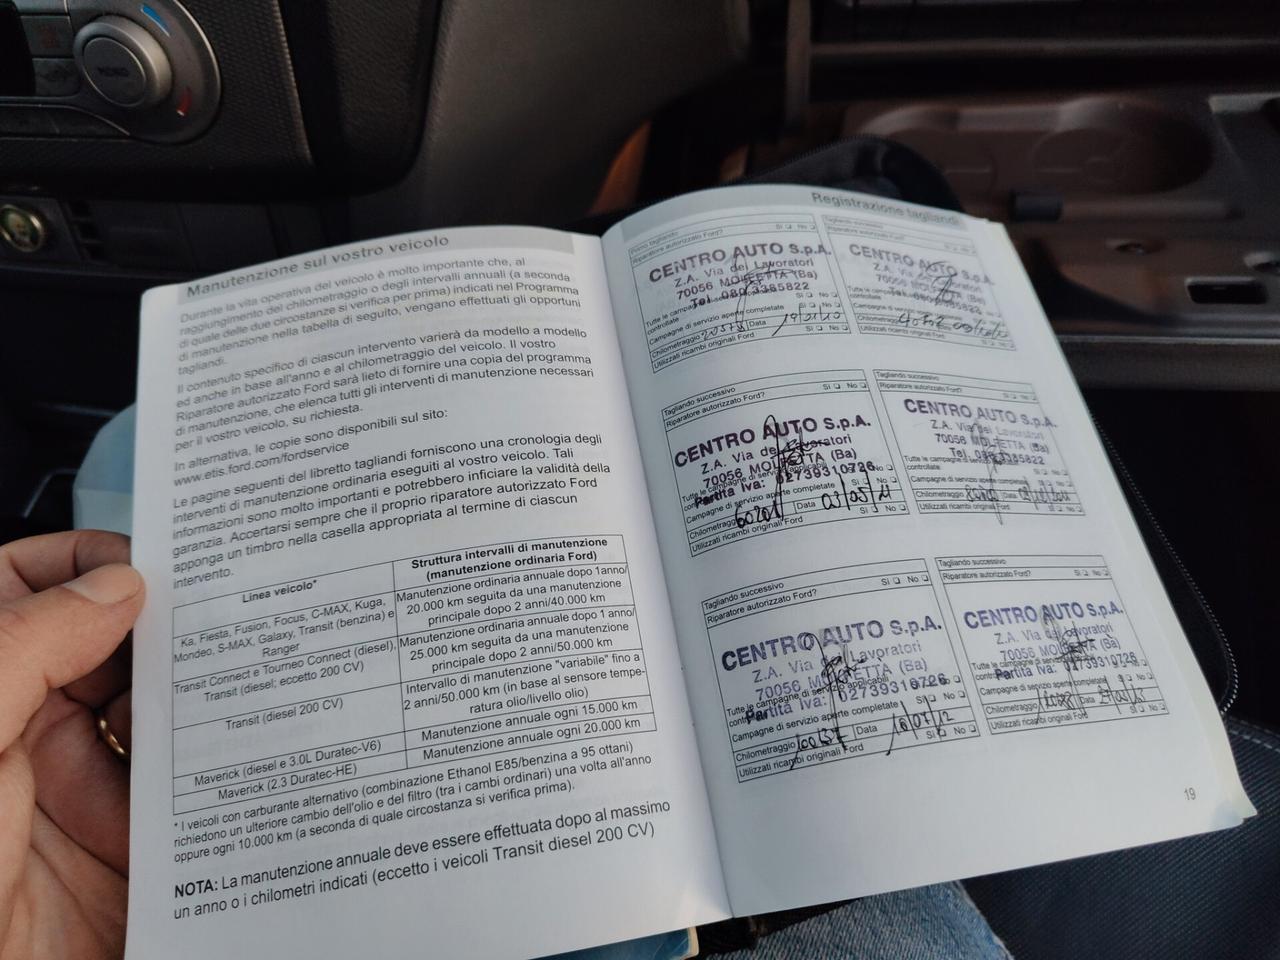 MONO
Manutenzione sul vostro veicolo
Durante la vita operativa del veicolo è molto importante che, al
raggiungimento del chilometraggio o degli intervalli annuali (a seconda
di quale delle due circostanze si verifica per prima) indicati nel Programma
di manutenzione nella tabella di seguito, vengano effettuati gli opportuni
tagliandi.
Il contenuto specifico di ciascun intervento varierà da modello a modello
ed anche in base all'anno e al chilometraggio del veicolo. Il vostro
Riparatore autorizzato Ford sarà lieto di fornire una copia del programma
di manutenzione, che elenca tutti gli interventi di manutenzione necessari
per il vostro veicolo, su richiesta.
In alternativa, le copie sono disponibili sul sito:
www.etis.ford.com/fordservice
Le pagine seguenti del libretto tagliandi forniscono una cronologia degli
interventi di manutenzione ordinaria eseguiti al vostro veicolo. Tali
informazioni sono molto importanti e potrebbero inficiare la validità della
garanzia. Accertarsi sempre che il proprio riparatore autorizzato Ford
apponga un timbro nella casella appropriata al termine di ciascun
intervento.
Linea veicolo*
Struttura intervalli di manutenzione
(manutenzione ordinaria Ford)
Ka, Fiesta, Fusion, Focus, C-MAX, Kuga,
Mondeo, S-MAX, Galaxy, Transit (benzina) e
Ranger
Manutenzione ordinaria annuale dopo 1anno/
20.000 km seguita da una manutenzione
principale dopo 2 anni/40.000 km
Transit Connect e Torneo Connect (diesel),
Transit (diesel; eccetto 200 CV)
Manutenzione ordinaria annuale dopo 1 anno/
25.000 km seguita da una manutenzione
principale dopo 2 anni/50.000 km
Transit (diesel 200 CV)
Intervallo di manutenzione "variabile" fino a
2 anni/50.000 km (in base al sensore tempe-
ratura olio/livello olio)
Maverick (diesel e 3.0L Duratec-V6)
Manutenzione annuale ogni 15.000 km
Maverick (2.3 Duratec-HE)
Manutenzione annuale ogni 20.000 km
* I veicoli con carburante alternativo (combinazione Ethanol E85/benzina a 95 ottani)
richiedono un ulteriore cambio dell'olio e del filtro (tra i cambi ordinari) una volta all'anno
oppure ogni 10.000 km (a seconda di quale circostanza si verifica prima).
NOTA: La manutenzione annuale deve essere effettuata dopo al massimo
un anno o i chilometri indicati (eccetto i veicoli Transit diesel 200 CV)
Registrazione tagliandi
Primo tagliando
Riparatore autorizzato Ford? Sì No
CENTRO AUTO S.p.A.
Z.A. Via dei Lavoratori
70056 MOLFETTA (Ba)
Tel. 080 3385822
Tutte le campagne
controllate
Sì No
Campagne di servizio aperte completate Sì No
Chilometraggio Data
Utilizzati ricambi originali Ford
Tagliando successivo
Riparatore autorizzato Ford?
CENTRO AUTO S.p.A.
Z.A. Via dei Lavoratori
70056 MOLFETTA (Ba)
Tel. 080 3385822
Tutte le campagne
controllate
Campagne di servizio
Chilometraggio
Utilizzati ricambi originali Ford
Tagliando successivo
Riparatore autorizzato Ford? Sì No
CENTRO AUTO S.p.A.
Z.A. Via dei Lavoratori
70056 MOLFETTA (Ba)
Partita Iva: 02739310726
Tutte le campagne di servizio applicabili
Campagne di servizio aperte completate Sì No
Chilometraggio 60201 Data 03/05/11
Utilizzati ricambi originali Ford Sì No
Tagliando successivo
Riparatore autorizzato Ford?
CENTRO AUTO S.p.A.
Z.A. Via dei Lavoratori
70056 MOLFETTA (Ba)
Tel. 080 3385822
Tutte le campagne di servizio
controllate
Campagne di servizio aperte completate
Chilometraggio Data
Utilizzati ricambi originali Ford
Tagliando successivo
Riparatore autorizzato Ford? Sì No
CENTRO AUTO S.p.A.
Z.A. Via dei Lavoratori
70056 MOLFETTA (Ba)
Partita Iva: 02739310726
Tutte le campagne di servizio applicabili
Campagne di servizio aperte completate Sì No
Chilometraggio Data 16/07/12
Utilizzati ricambi originali Ford Sì No
Tagliando successivo
Riparatore autorizzato Ford? Sì No
CENTRO AUTO S.p.A.
Z.A. Via dei Lavoratori
70056 MOLFETTA (Ba)
Partita Iva: 02739310726
Tutte le campagne di servizio
Campagne di servizio aperte completate
Chilometraggio Data
Utilizzati ricambi originali Ford
19